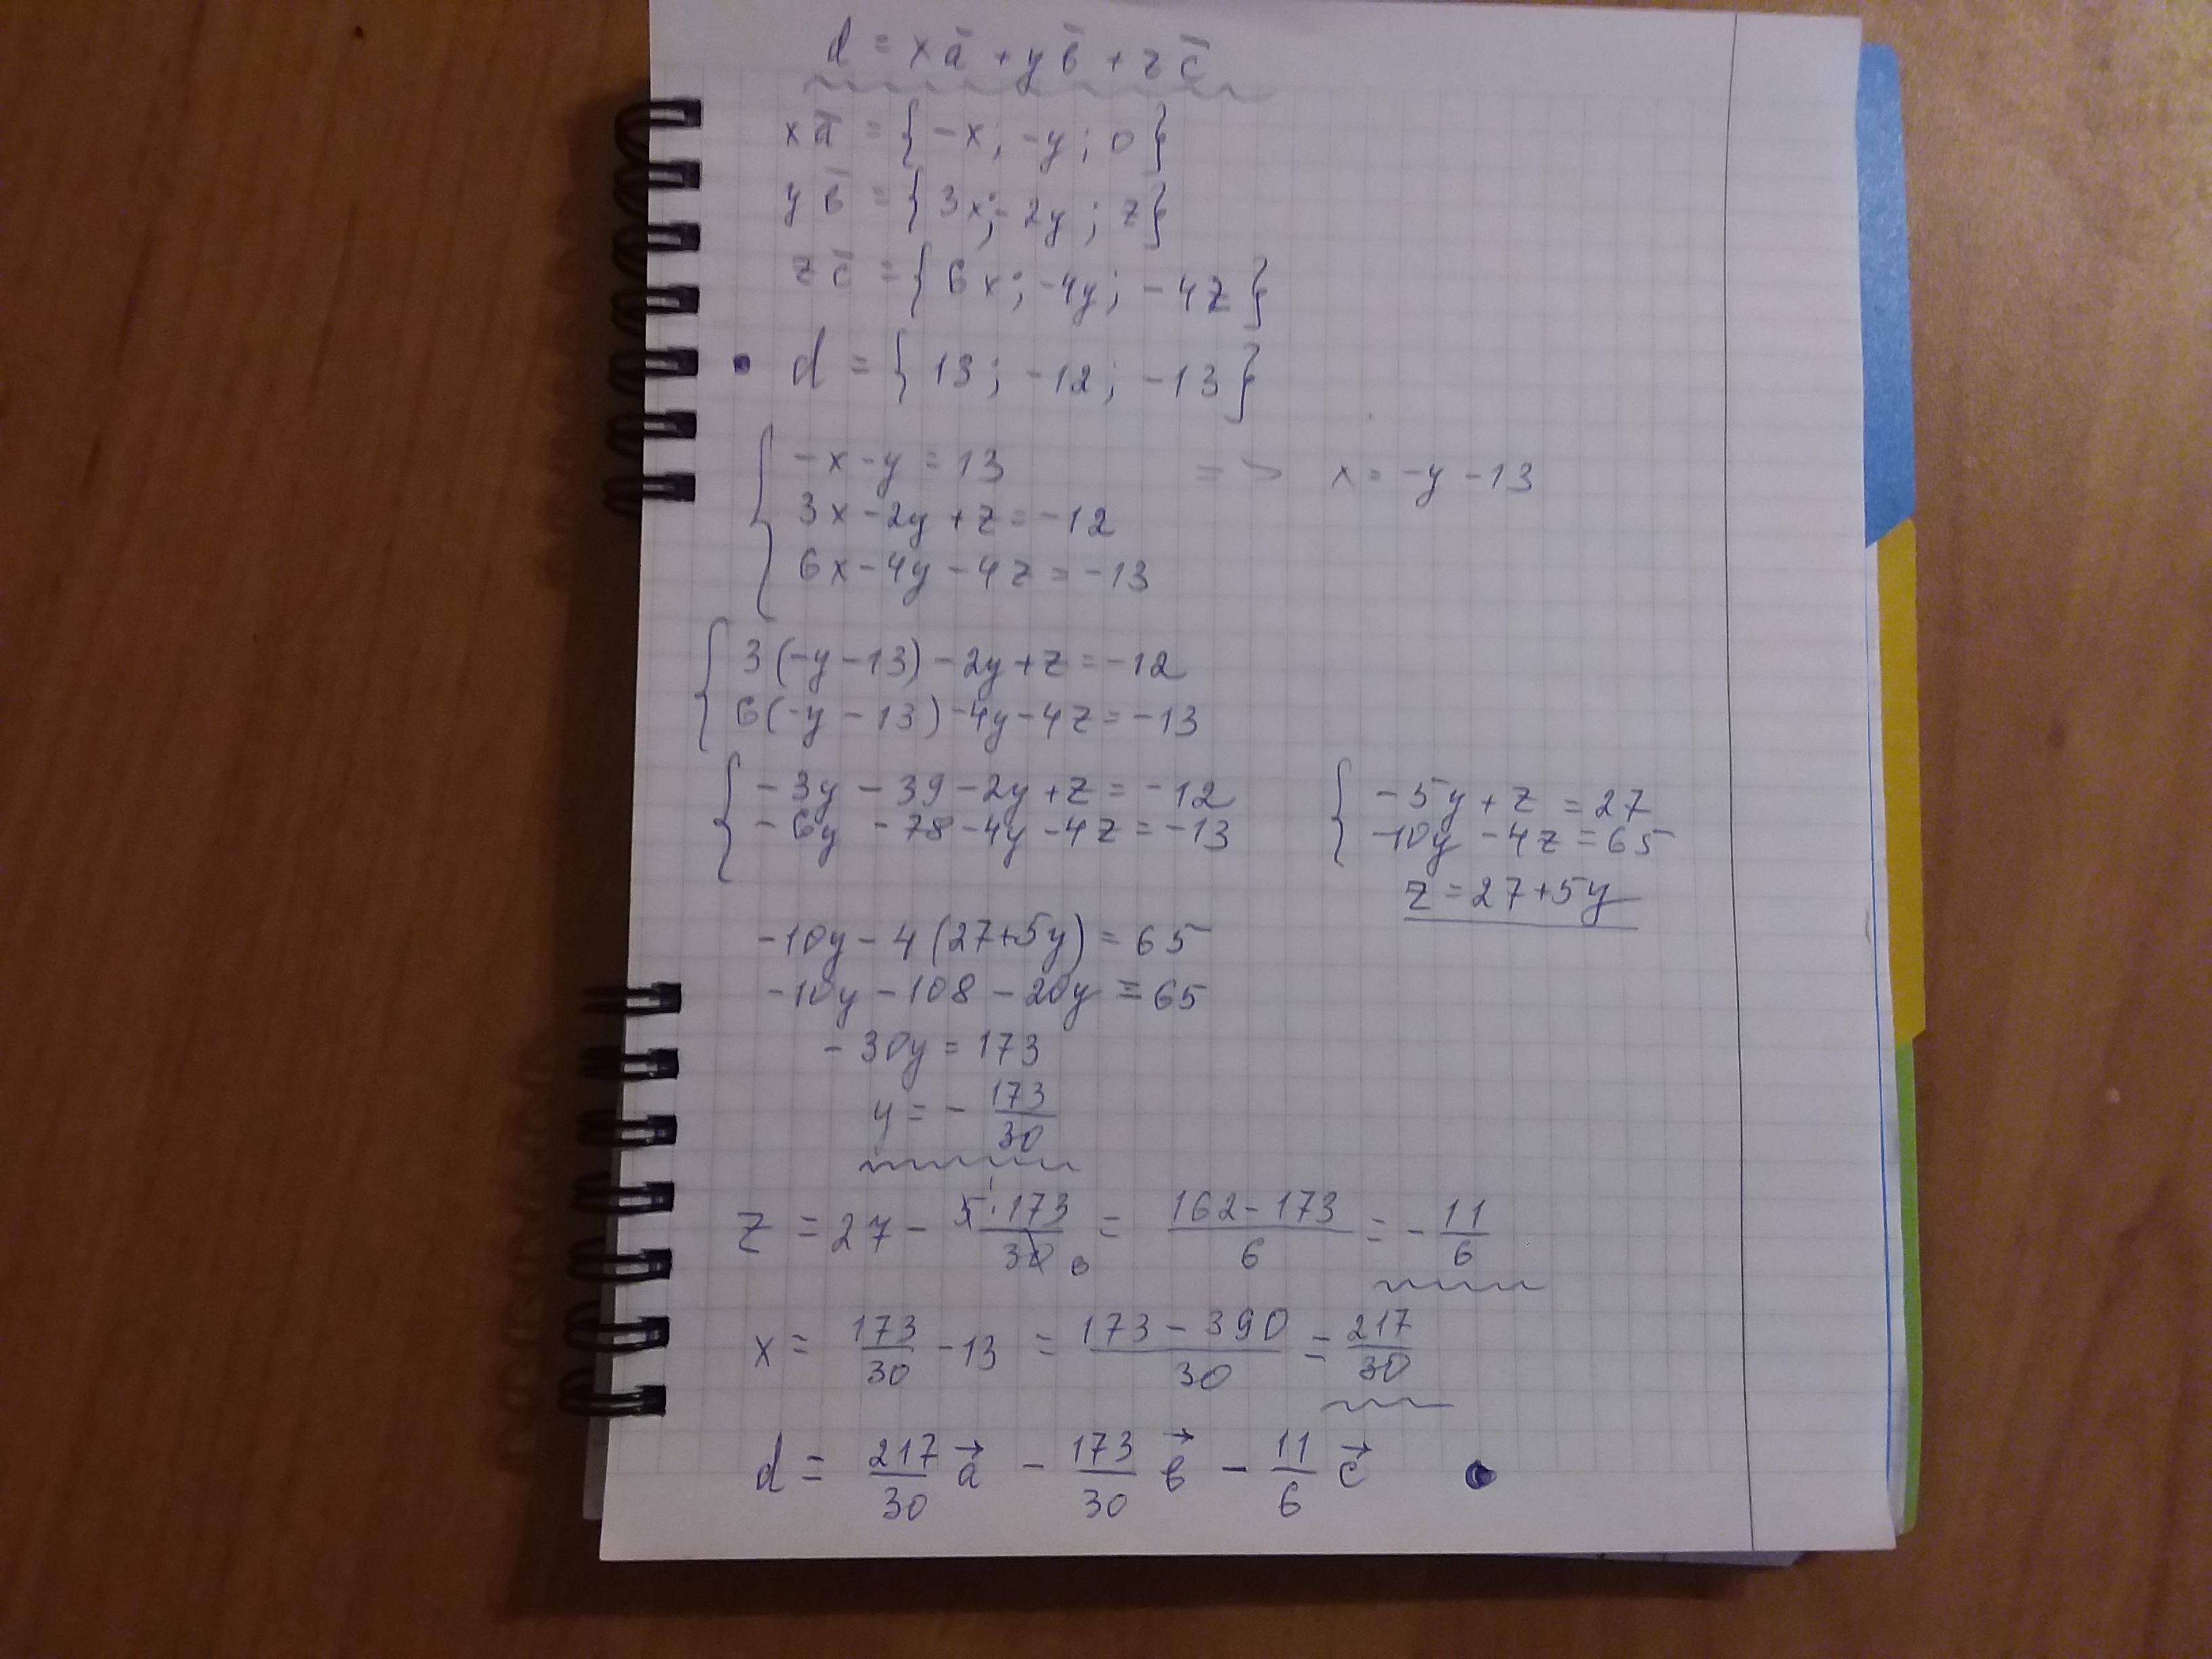 d = xā + yв̄ + zc̄
xā = {-x; -y; 0}
yв̄ = {3x; -2y; z}
zc̄ = {6x; -4y; -4z}
d = {13; -12; -13}
-x - y = 13 => x = -y - 13
3x - 2y + z = -12
6x - 4y - 4z = -13
3(-y - 13) - 2y + z = -12
6(-y - 13) - 4y - 4z = -13
-3y - 39 - 2y + z = -12
-6y - 78 - 4y - 4z = -13
-5y + z = 27
-10y - 4z = 65
z = 27 + 5y
-10y - 4(27 + 5y) = 65
-10y - 108 - 20y = 65
-30y = 173
y = - 173/30
z = 27 - 5·173/30 = (162 - 173)/6 = - 11/6
x = 173/30 - 13 = (173 - 390)/30 = 217/30
d = 217/30 a⃗ - 173/30 в⃗ - 11/6 c⃗